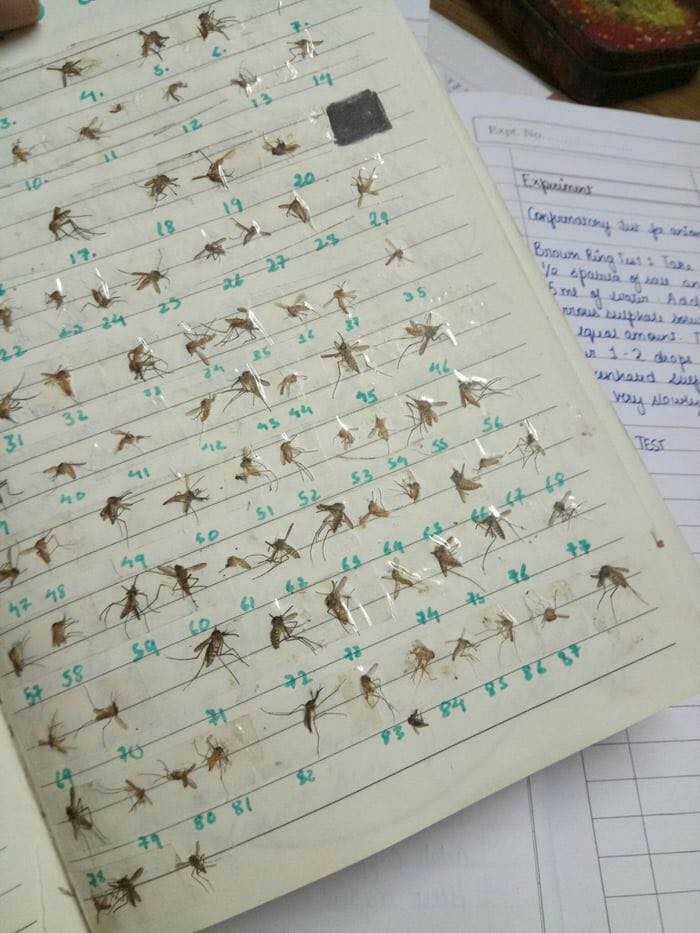 3. 4. 5. 6. 7.
10. 11 12 13 14
17. 18 19 20
22 23 24 25 26 27 28 29
31 32 33 34 35 36 37 38
40 41 42 43 44 45 46
47 48 49 50 51 52 53 54 55 56
57 58 59 60 61 62 63 64 65 66 67 68
69 70 71 72 73 74 75 76 77
78 79 80 81 82 83 84 85 86 87
Expt. No.
Experiment
Confirmatory Test for anion
Brown Ring Test : Take
1/2 spatula of salt an
5 ml of water. Add
rrous sulphate solu
equal amount. T
r 1-2 drops
very slowly
TEST